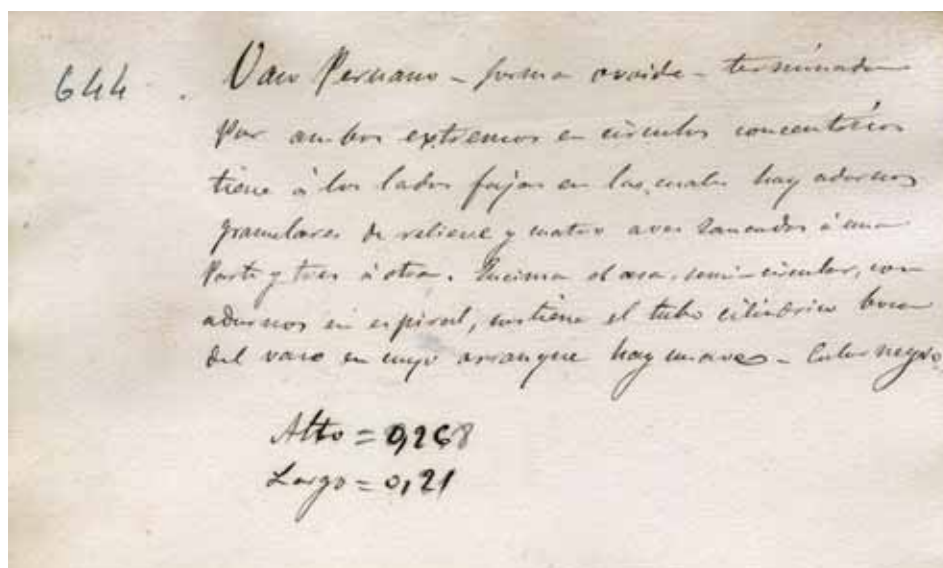 644. Vaso Peruano - forma ovoide - terminado
Por ambos extremos en circulos concentricos
tiene á los lados fajas en las cuales hay adornos
granulares de relieve y cuatro aves zancudas á una
Parte y tres á otra. Encima el asa, semi-circular, con
adornos en espiral, sostiene el tubo cilindrico boca
del vaso en cuyo arranque hay un ave - Color negro
Alto = 0,268
Largo = 0,21